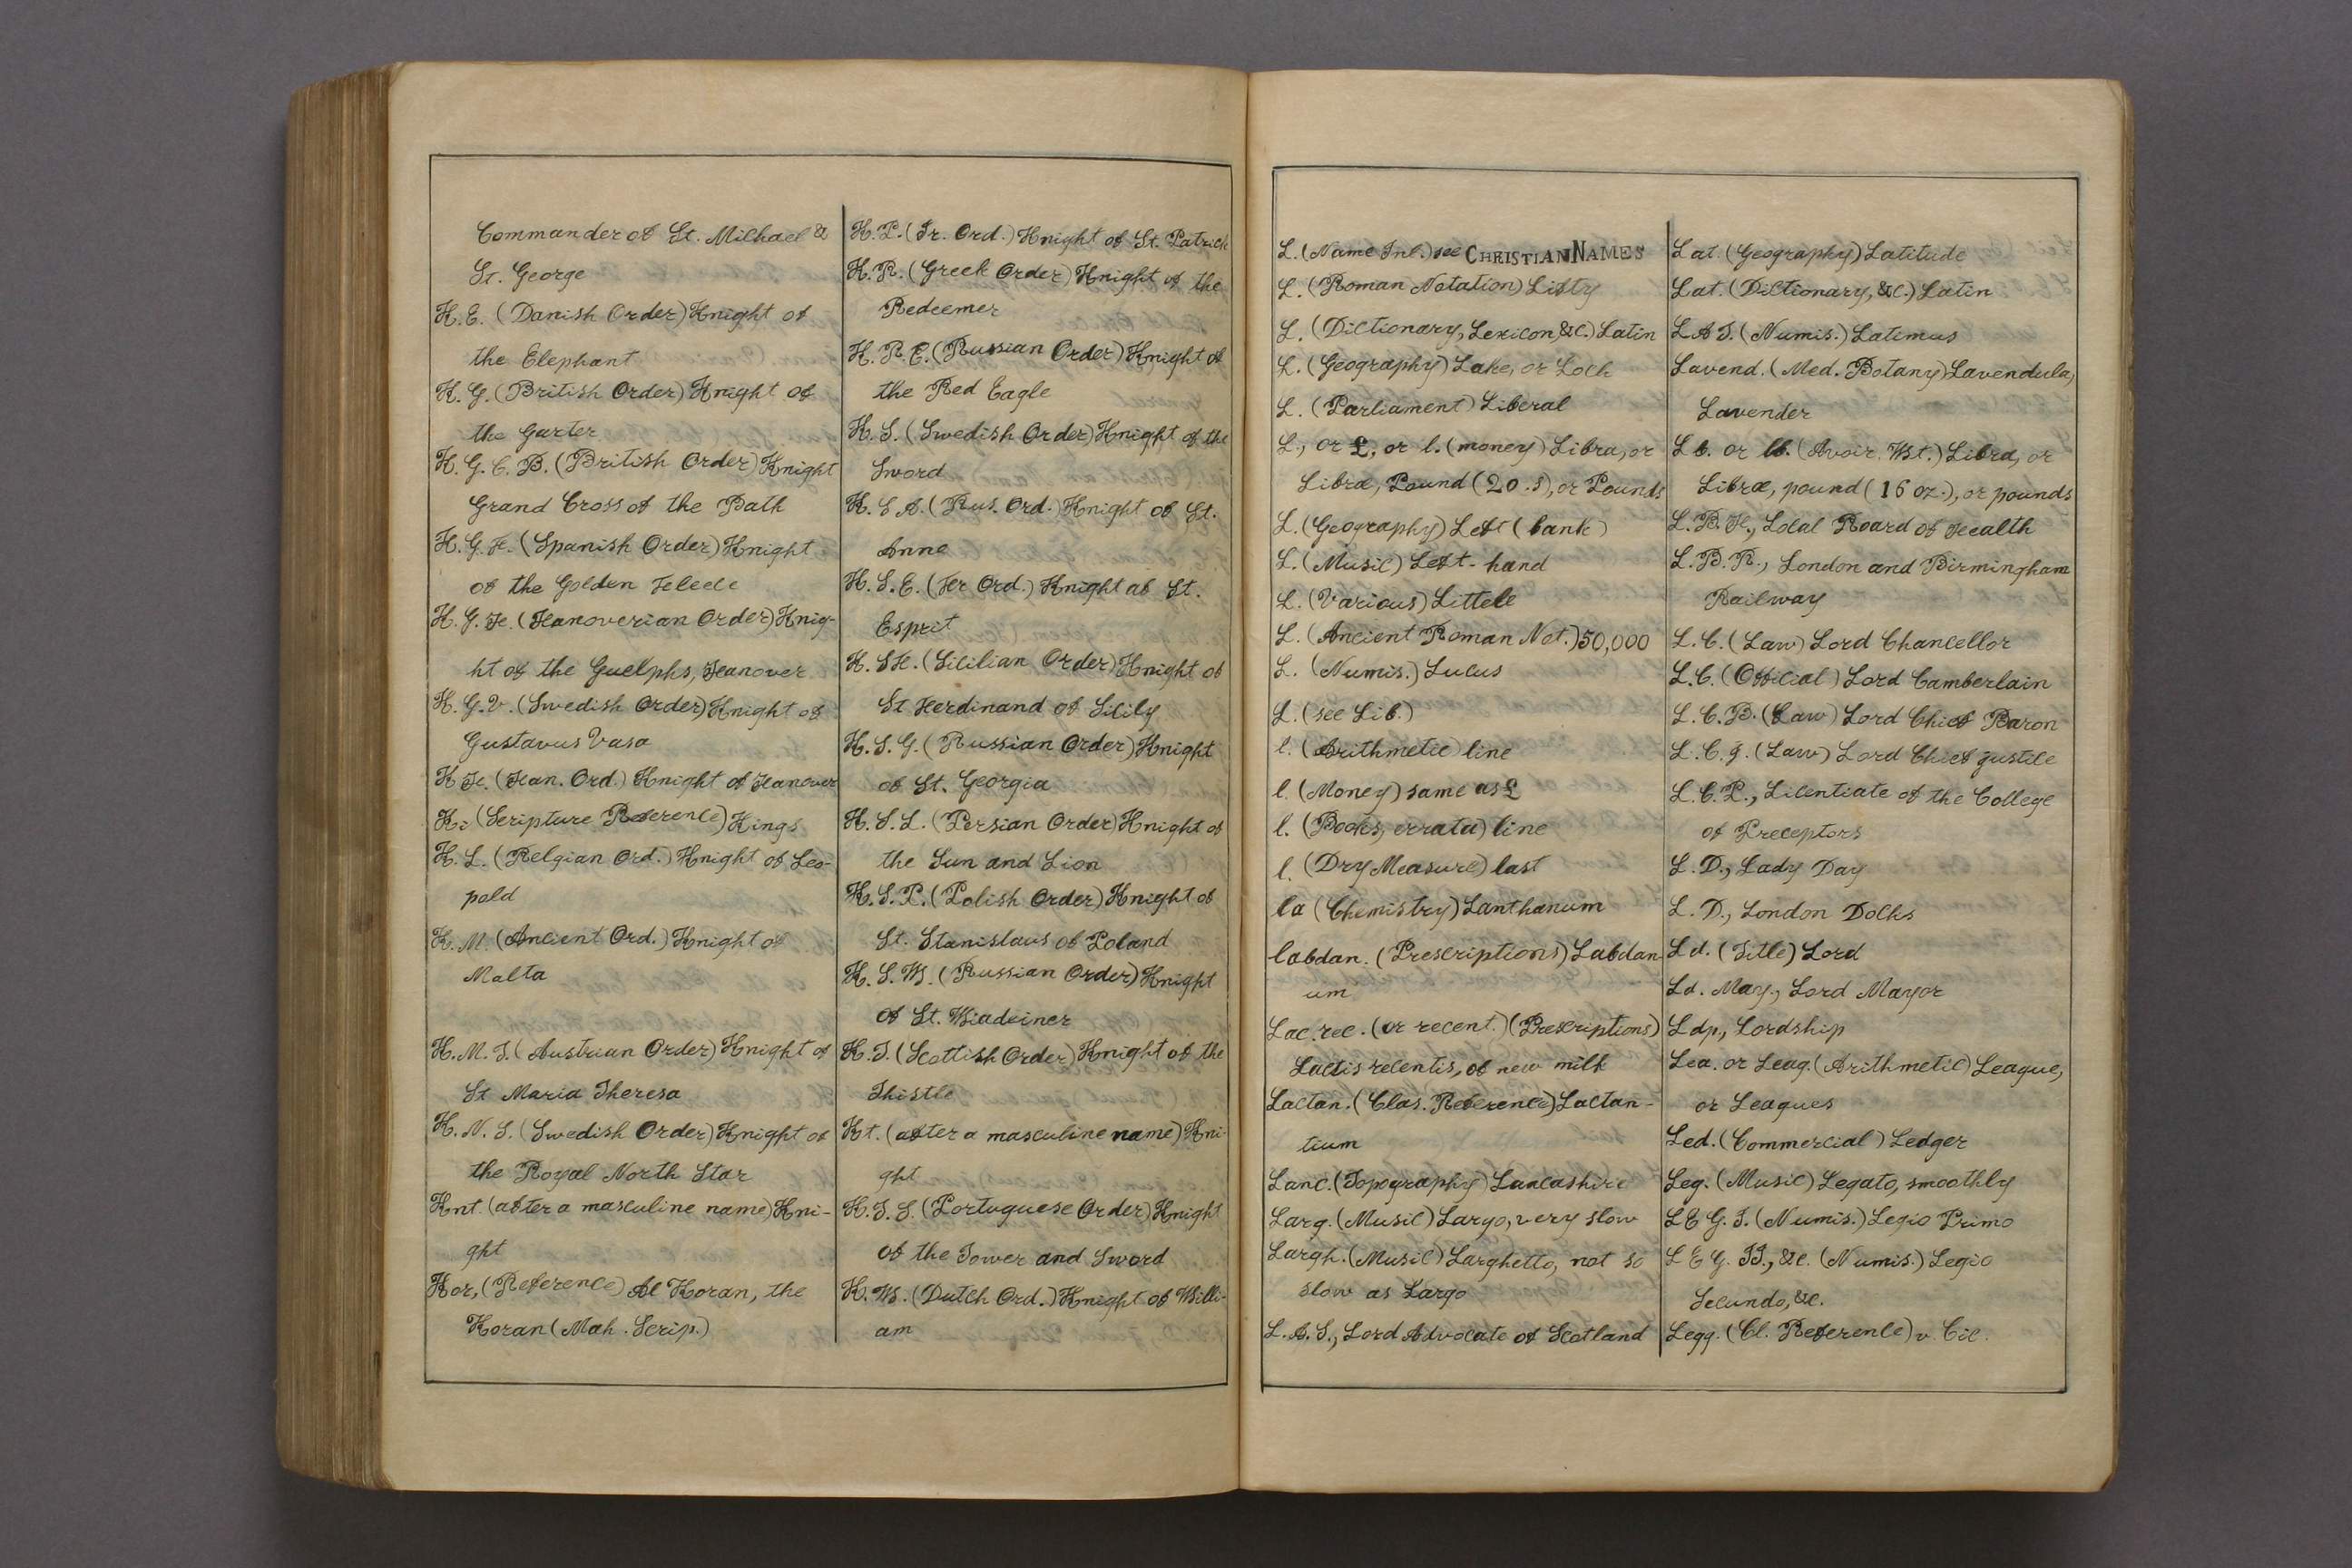 Commander of St. Michael &
St. George
K.E. (Danish Order) Knight of
the Elephant
K.G. (British Order) Knight of
the Garter
K.G.C.B. (British Order) Knight
Grand Cross of the Bath
K.G.F. (Spanish Order) Knight
of the Golden Fleece
K.G.H. (Hanoverian Order) Knig-
ht of the Guelphs, Hanover
K.G.V. (Swedish Order) Knight of
Gustavus Vasa
K H. (Han. Ord.) Knight of Hanover
Ki (Scripture Reference) Kings
K.L. (Belgian Ord.) Knight of Leo-
pold
K.M. (Ancient Ord.) Knight of
Malta
K.M.T. (Austrian Order) Knight of
St Maria Theresa
K.N.S. (Swedish Order) Knight of
the Royal North Star
Knt. (after a masculine name) Kni-
ght
Kor, (Reference) Al Koran, the
Koran (Mah. Scrip.)
K.P. (Ir. Ord.) Knight of St. Patrick
K.R. (Greek Order) Knight of the
Redeemer
K.R.E. (Russian Order) Knight of
the Red Eagle
K.S. (Swedish Order) Knight of the
Sword
K.S A. (Rus. Ord.) Knight of St.
Anne
K.S.E. (Fr Ord.) Knight of St.
Esprit
K.S F. (Sicilian Order) Knight of
St Ferdinand of Sicily
K.S.G. (Russian Order) Knight
of St. Georgia
K.S.L. (Persian Order) Knight of
the Sun and Lion
K.S.P. (Polish Order) Knight of
St. Stanislaus of Poland
K.S.W. (Russian Order) Knight
of St. Wiadeiner
K.T. (Scottish Order) Knight of the
Thistle
Kt. (after a masculine name) Kni-
ght
K.T.S. (Portuguese Order) Knight
of the Tower and Sword
K.W. (Dutch Ord.) Knight of Willi-
am
L. (Name Inl.) see CHRISTIAN NAMES
L. (Roman Notation) Lifty
L. (Dictionary, Lexicon &c.) Latin
L. (Geography) Lake, or Loch
L. (Parliament) Liberal
L., or £, or l. (money) Libra, or
Libræ, Pound (20.s), or Pounds
L. (Geography) Left (bank)
L. (Music) Left-hand
L. (Various) Littele
L. (Ancient Roman Not.) 50,000
L. (Numis.) Lucus
L. (see Lib.)
l. (Arithmetic) line
l. (Money) same as £
l. (Books, errata) line
l. (Dry Measure) last
la (Chemistry) Lanthanum
labdan. (Prescriptions) Labdan-
um
Lac. rec. (or recent.) (Prescriptions)
Lactis recentis, of new milk
Lactan. (Clas. Reference) Lactan-
tium
Lanc. (Topography) Lancashire
Larg. (Music) Largo, very slow
Largh. (Music) Larghetto, not so
slow as Largo
L.A.S., Lord Advocate of Scotland
Lat. (Geography) Latitude
Lat. (Dictionary, &c.) Latin
LAT. (Numis.) Latimus
Lavend. (Med. Botany) Lavendula,
Lavender
Lb. or lb. (Avoir. Wt.) Libra, or
Libræ, pound (16 oz.), or pounds
L.B.H., Local Board of Health
L.B.R., London and Birmingham
Railway
L.C. (Law) Lord Chancellor
L.C. (Official) Lord Camberlain
L.C.B. (Law) Lord Chief Baron
L.C.J. (Law) Lord Chief Justice
L.C.P., Licentiate of the College
of Preceptors
L.D., Lady Day
L.D., London Docks
Ld. (Title) Lord
Ld. May., Lord Mayor
Ldp., Lordship
Lea. or Leag. (Arithmetic) League,
or Leagues
Led. (Commercial) Ledger
Leg. (Music) Legato, smoothly
LEG. I. (Numis.) Legio Primo
LEG. II., &c. (Numis.) Legio
Secundo, &c.
Legg. (Cl. Reference) v. Cic.